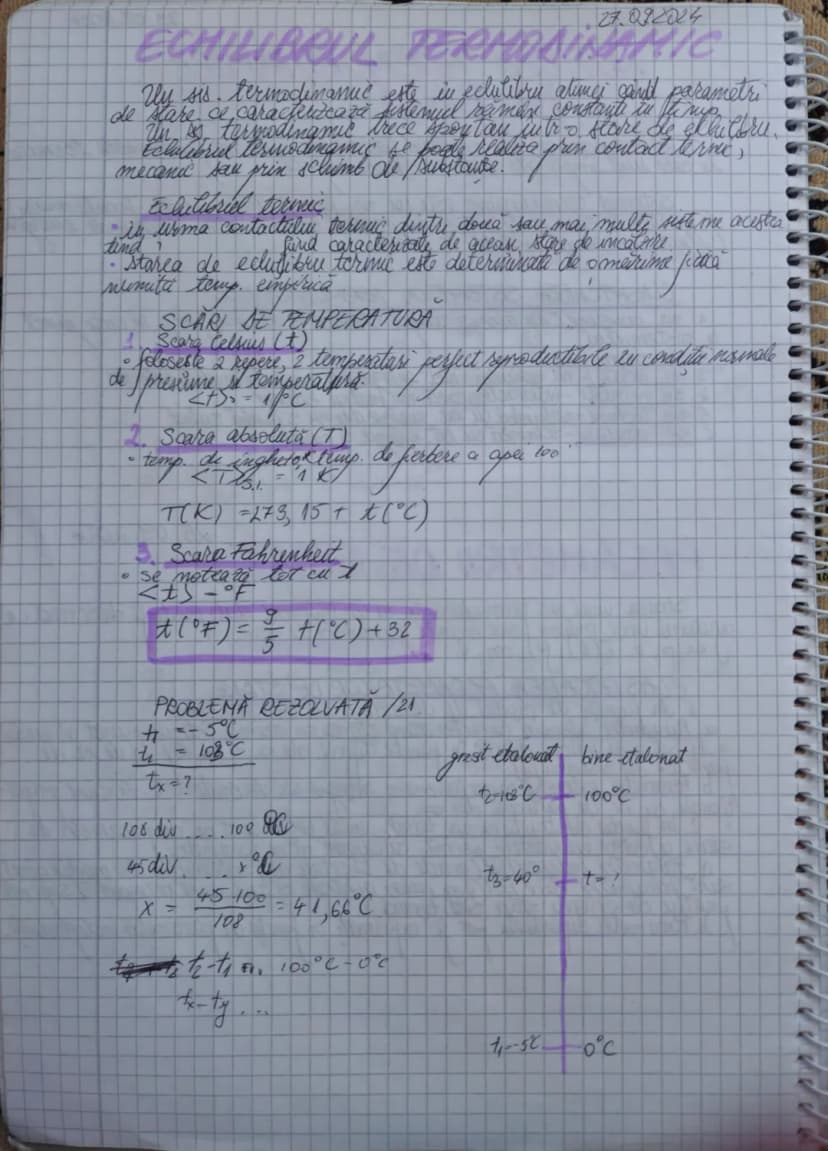 27.09.2024
ECHILIBRUL TERMODINAMIC
Un sis. termodinamic este in echilibru atunci când parametri
de stare ce caracterizează sistemul rămân constanți in timp.
Un sis. termodinamic trece spontan într-o stare de echilibru.
Echilibrul termodinamic se poate realiza prin contact termic,
mecanic sau prin schimb de substanțe.
Echilibrul termic
• in urma contactului termic dintre două sau mai multe sisteme acestea
tind fiind caracterizate de aceeași stare de încălzire
• starea de echilibru termic este determinată de o mărime fizică
numită temp. empirică
SCĂRI DE TEMPERATURĂ
1. Scara Celsius (t)
• folosește 2 repere, 2 temperaturi perfect reproductibile in condiții normale
de presiune și temperatură.
<t> = 1°C
2. Scara absolută (T)
• temp. de îngheț temp. de fierbere a apei 100
<T>S.I. = 1 K
T(K) = 273,15 + t(°C)
3. Scara Fahrenheit
• se notează tot cu t
<t> - °F
t(°F) = 9/5 t(°C) + 32
PROBLEMĂ REZOLVATĂ /21
t1 = - 5°C
= 108°C
tx = ?
108 div .... 100
45 div ....
x = 45·100/108 = 41,66°C
t2 - t1 ... 100°C - 0°C
tx - ty ...
greșit etalonat bine etalonat
100°C
t3=40° t = ?
t1=-5°C 0°C